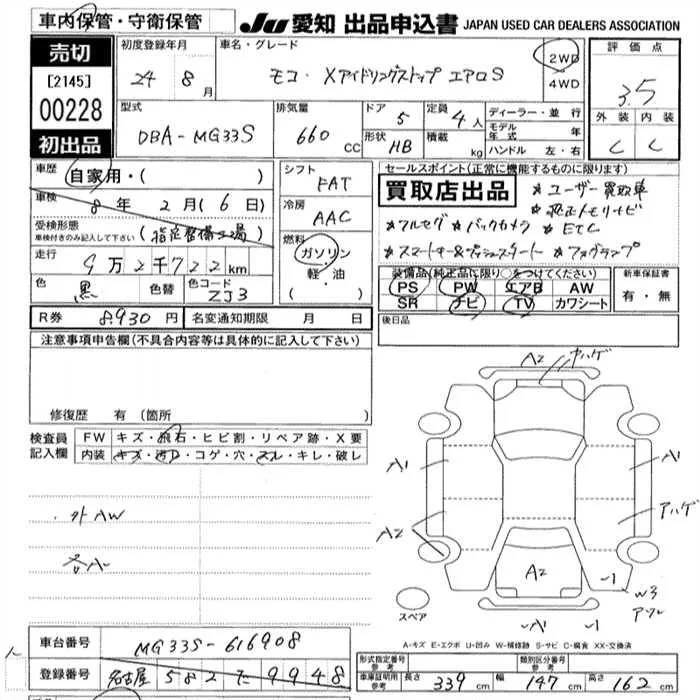 車内保管・守衛保管 JU 愛知 出品申込書 JAPAN USED CAR DEALERS ASSOCIATION
売切 初度登録年月 車名・グレード 2WD 評価点
[2145] 24 8月 モコ・Xアイドリングストップ エアロS 4WD 3.5
00228 型式 排気量 ドア 定員 ディーラー・並行 外装 内装
初出品 DBA-MG33S 660cc 5 4人 モデル年式 年 C C
形状 HB 積載 kg ハンドル 左・右
車歴 自家用・( ) シフト FAT セールスポイント(正常に機能するものに限ります)
車検 8年 2月(6日) 冷房 AAC 買取店出品 ★ユーザー買取車
★純正メモリナビ
受検形態 車検付きのみ記入して下さい (指定整備工場) 燃料 ★フルセグ ★バックカメラ ★ETC
走行 9万2千722km ガソリン・軽・油 ( ) ★スマートキー&プッシュスタート ★フォグランプ
色 黒 色替 色コード ZJ3 装備品(純正品に限り○をつけてください) 新車保証書
PS PW エアB AW 有・無
SR ナビ TV カワシート
R券 8,930円 名変通知期限 月 日 後日品
注意事項申告欄(不具合内容等は具体的に記入して下さい)
修復歴 有 (箇所
検査員記入欄 FW キズ・飛石・ヒビ割・リペア跡・X要
内装 キズ・汚レ・コゲ・穴・スレ・キレ・破レ
・外AW
各A-
A2 中ハゲ
A1 A1
A2 アハゲ
A2 -1 W3
スペア -A1 -1
A-キズ E-エクボ U-凹み W-補修跡 S-サビ C-腐食 XX-交換済
車台番号 MG33S-616908 形式指定番号 参考 類別区分番号 参考
登録番号 名古屋 582 て 9948 車庫証明用参考 長さ 339cm 幅 147cm 高さ 162cm